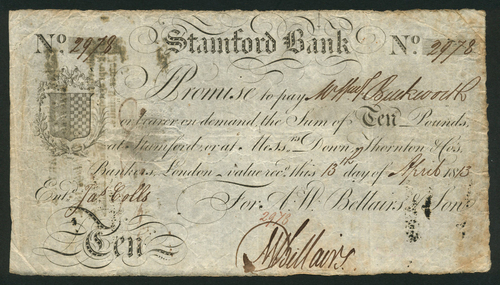 No. 2978 Stamford Bank No. 2978
I Promise to pay Mr Buckworth
or bearer on demand the Sum of Ten Pounds,
at Stamford or at Mess.rs Down, Thornton & Cos.
Bankers, London value rec.d this 13th day of April 1813
Ent.d Jas Colls For A. W. Bellairs Son
2978
Ten Bellairs